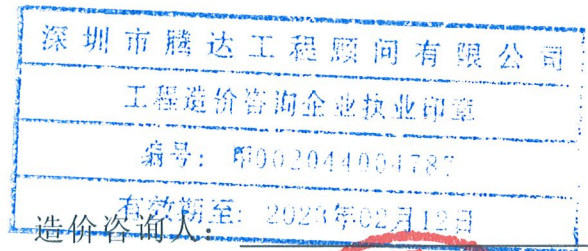 深圳市腾达工程顾问有限公司
工程造价咨询企业执业印章
编号：甲002044004787
有效期至：2023年02月12日
造价咨询人：